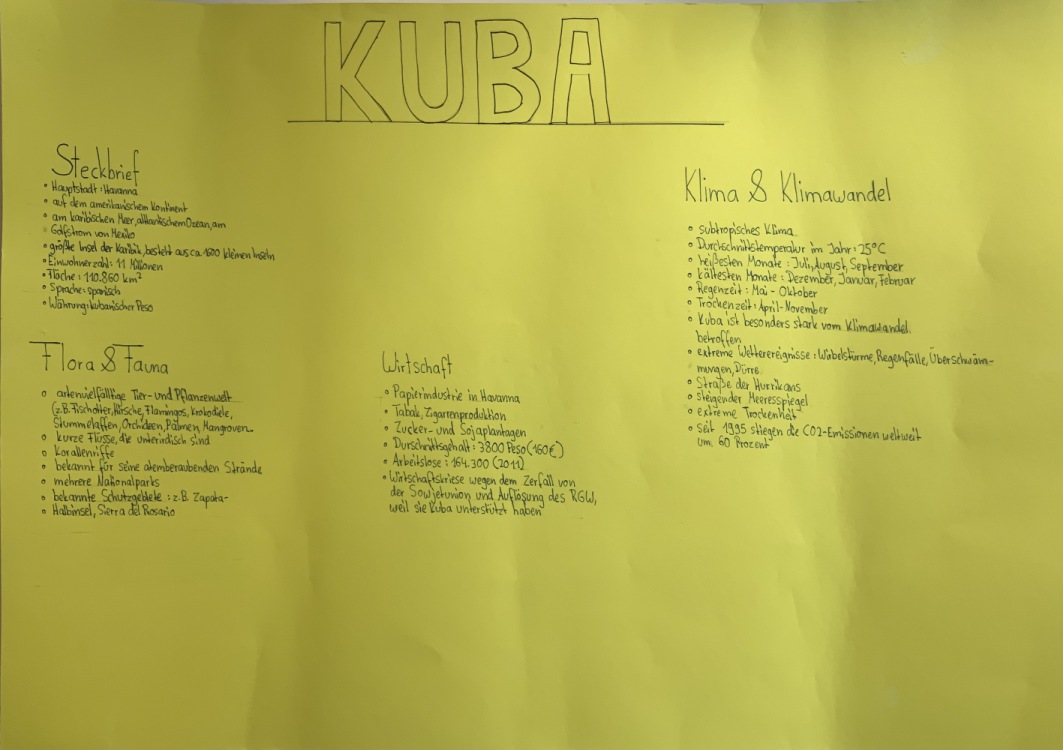 KUBA
Steckbrief
• Hauptstadt: Havanna
• auf dem amerikanischem Kontinent
• am karibischen Meer, atlantischem Ozean, am
Golfstrom von Mexiko
• größte Insel der Karibik, besteht aus ca. 1600 kleinen Inseln
• Einwohnerzahl: 11 Millionen
• Fläche: 110.860 km²
• Sprache: spanisch
• Währung: kubanischer Peso
Flora & Fauna
• artenvielfälltige Tier- und Pflanzenwelt
(z.B. Fischotter, Hirsche, Flamingos, Krokodiele,
Stummelaffen, Orchideen, Palmen, Mangroven...
• kurze Flüsse, die unterirdisch sind
• Korallenriffe
• bekannt für seine atemberaubenden Strände
• mehrere Nationalparks
• bekannte Schutzgebiete: z.B. Zapata-
• Halbinsel, Sierra del Rosario
Wirtschaft
• Papierindustrie in Havanna
• Tabak, Zigarrenproduktion
• Zucker- und Sojaplantagen
• Durschnittsgehalt: 3800 Peso (160€)
• Arbeitslose: 164.300 (2011)
• Wirtschaftskriese wegen dem Zerfall von
der Sowjetunion und Auflösung des RGW,
weil sie Kuba unterstützt haben
Klima & Klimawandel
• subtropisches Klima
• Durchschnittstemperatur im Jahr: 25°C
• heißesten Monate: Juli, August, September
• kältesten Monate: Dezember, Januar, Februar
• Regenzeit: Mai - Oktober
• Trockenzeit: April - November
• Kuba ist besonders stark vom Klimawandel
betroffen
• extreme Wetterereignisse: Wirbelstürme, Regenfälle, Überschwäm-
mungen, Dürre
• Straße der Hurrikans
• steigender Meeresspiegel
• extreme Trockenheit
• seit 1995 stiegen die CO2-Emissionen weltweit
um 60 Prozent